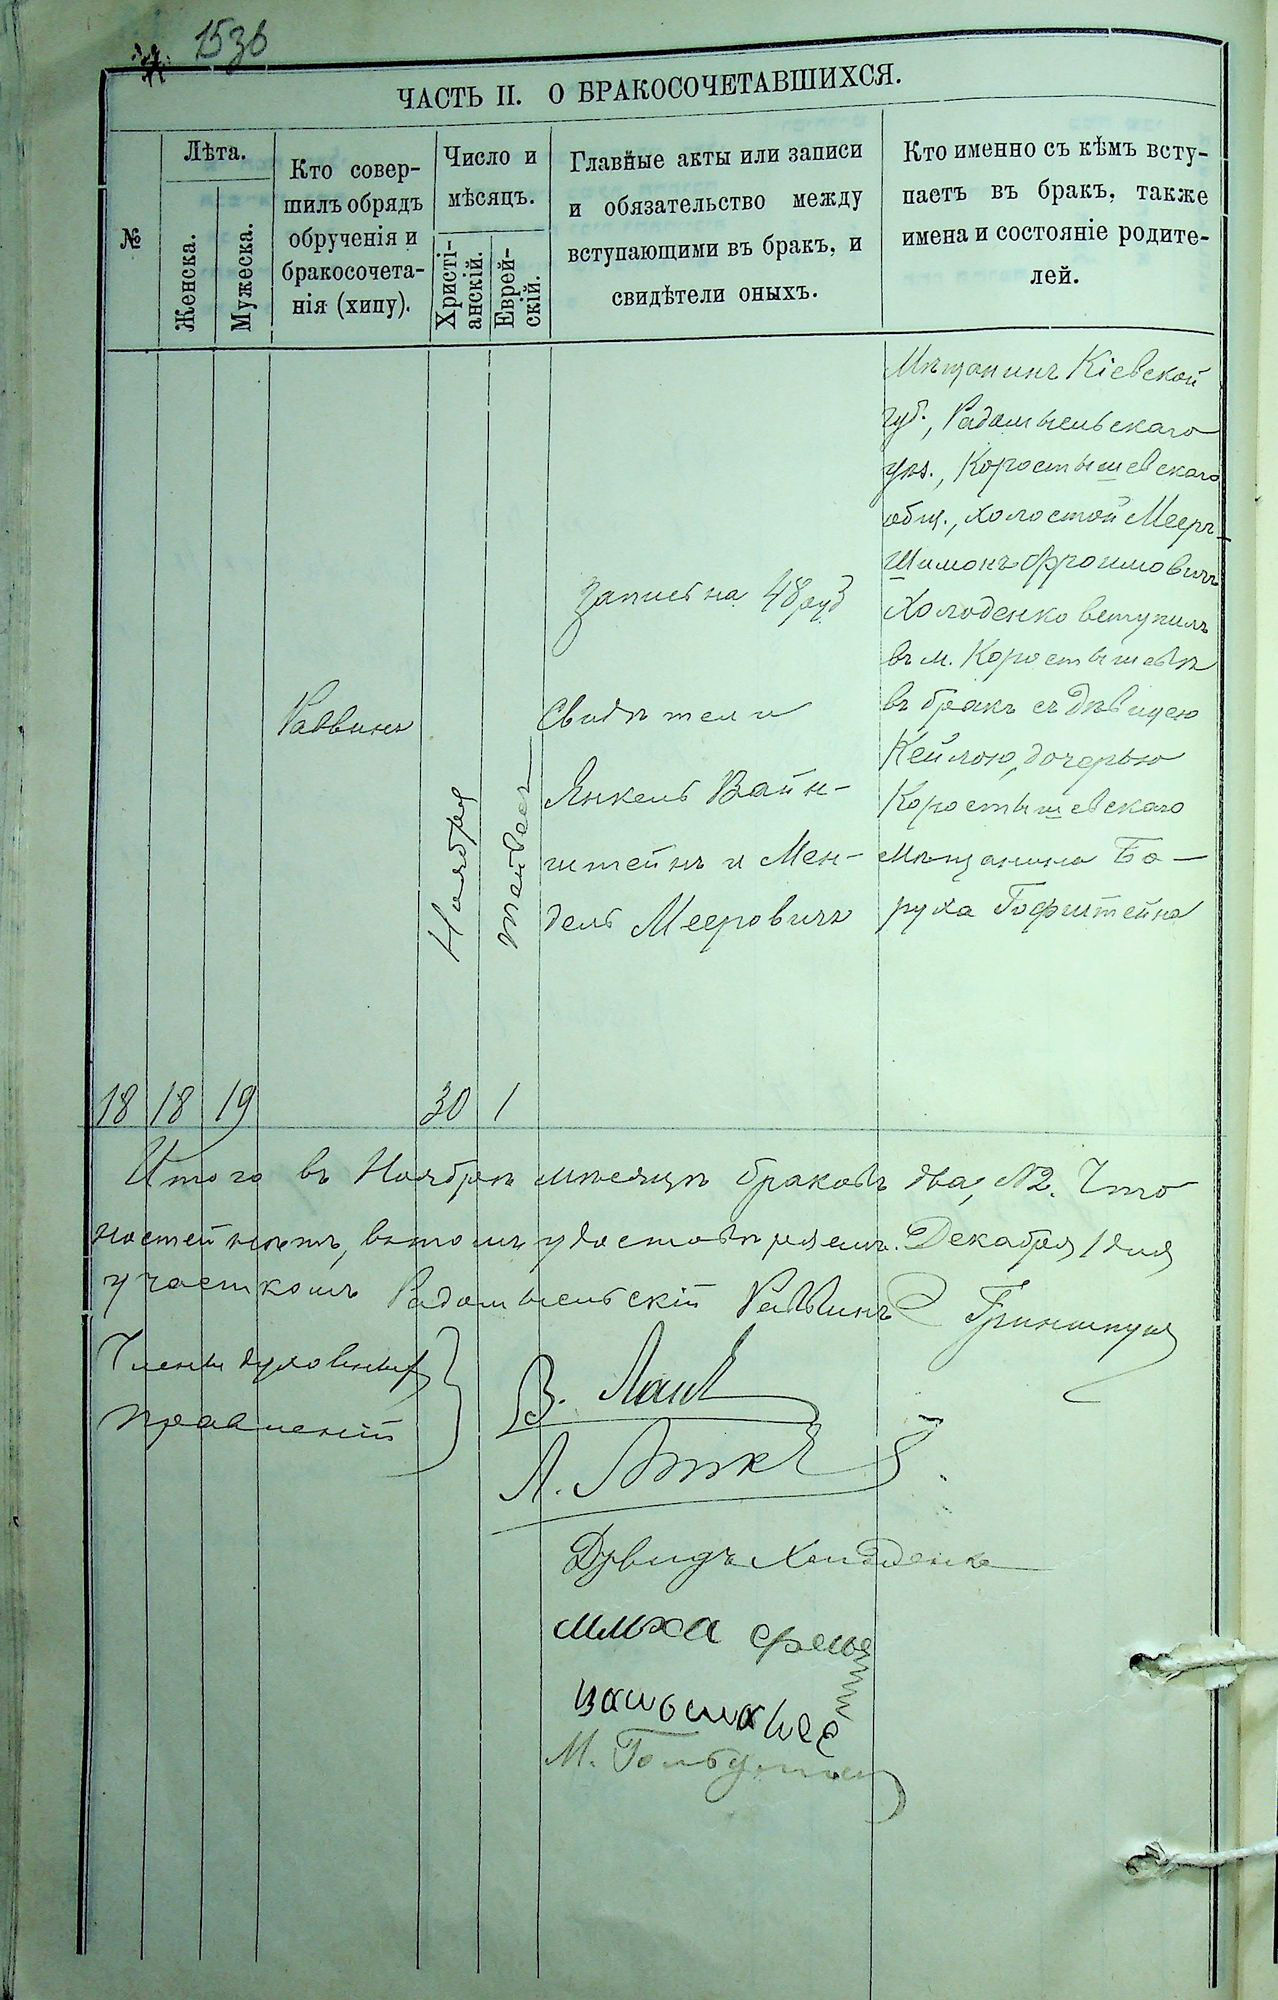 153б
ЧАСТЬ II. О БРАКОСОЧЕТАВШИХСЯ.
№
Лѣта.
Женска.
Мужеска.
Кто совер-
шилъ обрядъ
обрученія и
бракосочета-
нія (хипу).
Число и
мѣсяцъ.
Христі-
анскій.
Еврей-
скій.
Главные акты или записи
и обязательство между
вступающими въ бракъ, и
свидѣтели оныхъ.
Кто именно съ кѣмъ всту-
паетъ въ бракъ, также
имена и состояніе родите-
лей.
18
18
19
Раввинъ
Ноября
30
1
запись на 48 руб
Свидѣтели
Янкель Вайн-
штейнъ и Мен-
дель Мееровичъ
Мѣщанинъ Кіевской
губ., Радомысльскаго
уѣз., Коростышевскаго
общ., холостой Мееръ-
Шимонъ Фроимовичъ
Холоденко вступилъ
въ м. Коростышевѣ
въ бракъ съ дѣвицею
Кейлою, дочерью
Коростышевскаго
Мѣщанина Бо-
руха Гофштейна
Итого въ Ноябрѣ мѣсяцѣ браковъ два, №2. Что
ностей нѣтъ, въ томъ удостовѣряемъ. Декабря 1 дня
участкомъ Радомысльскій Раввинъ Гриншпун
Члены духовныхъ
правленій
В.
Л.
Дувидъ Холоденко
М.